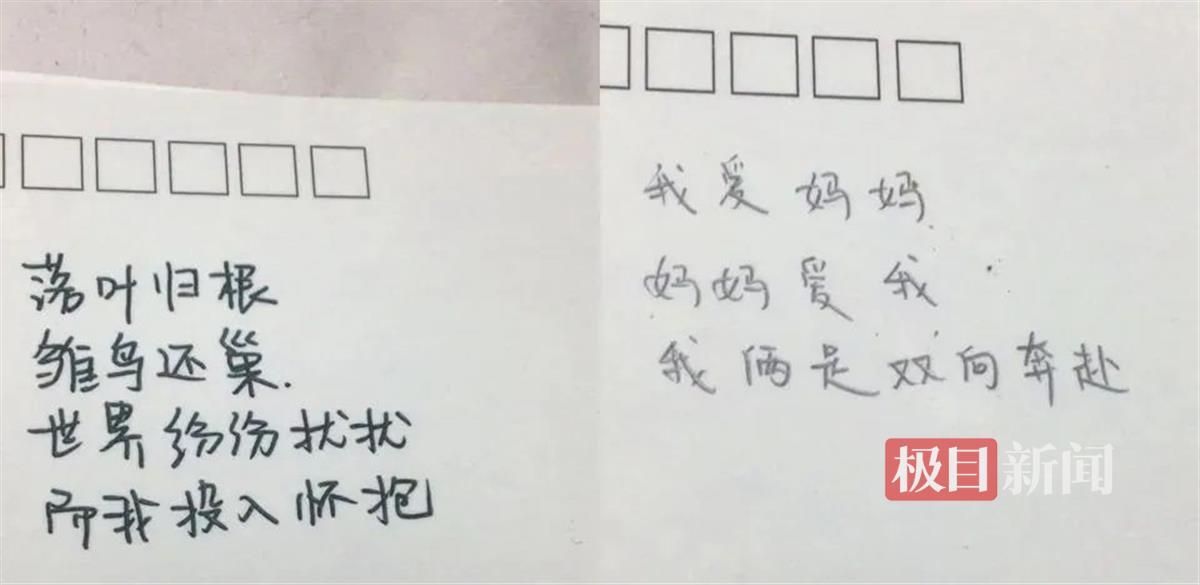 落叶归根
雏鸟还巢.
世界纷纷扰扰
而我投入怀抱
我爱妈妈
妈妈爱我
我俩是双向奔赴
极目新闻